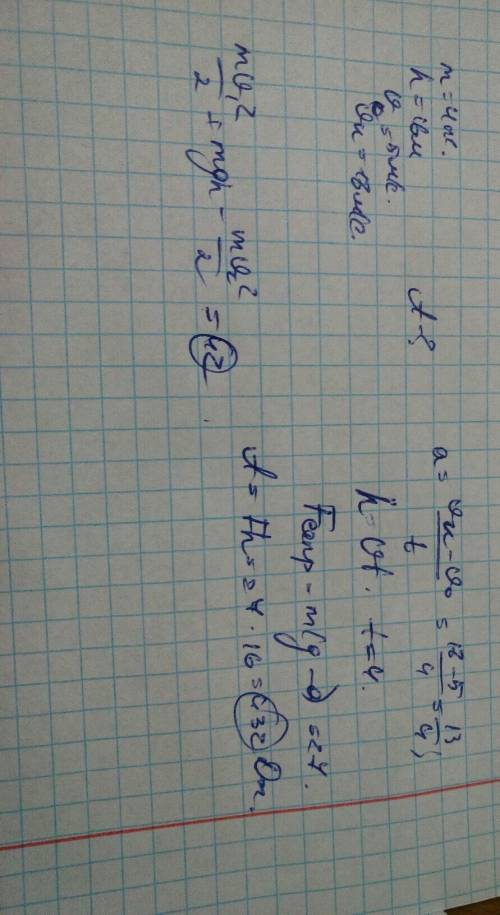 m = 4 кг.
h = 16 м
v₀ = 5 м/с.
vк = 18 м/с.
A - ?
a = (vк - v₀)/t = (12 - 5)/4 = 13/4;
h = vt. t = 4.
Fсопр = m(g - a) = 27.
A = Fh = 27 · 16 = 432 Дж.
mv₁²/2 + mgh - mv₂²/2 = 42